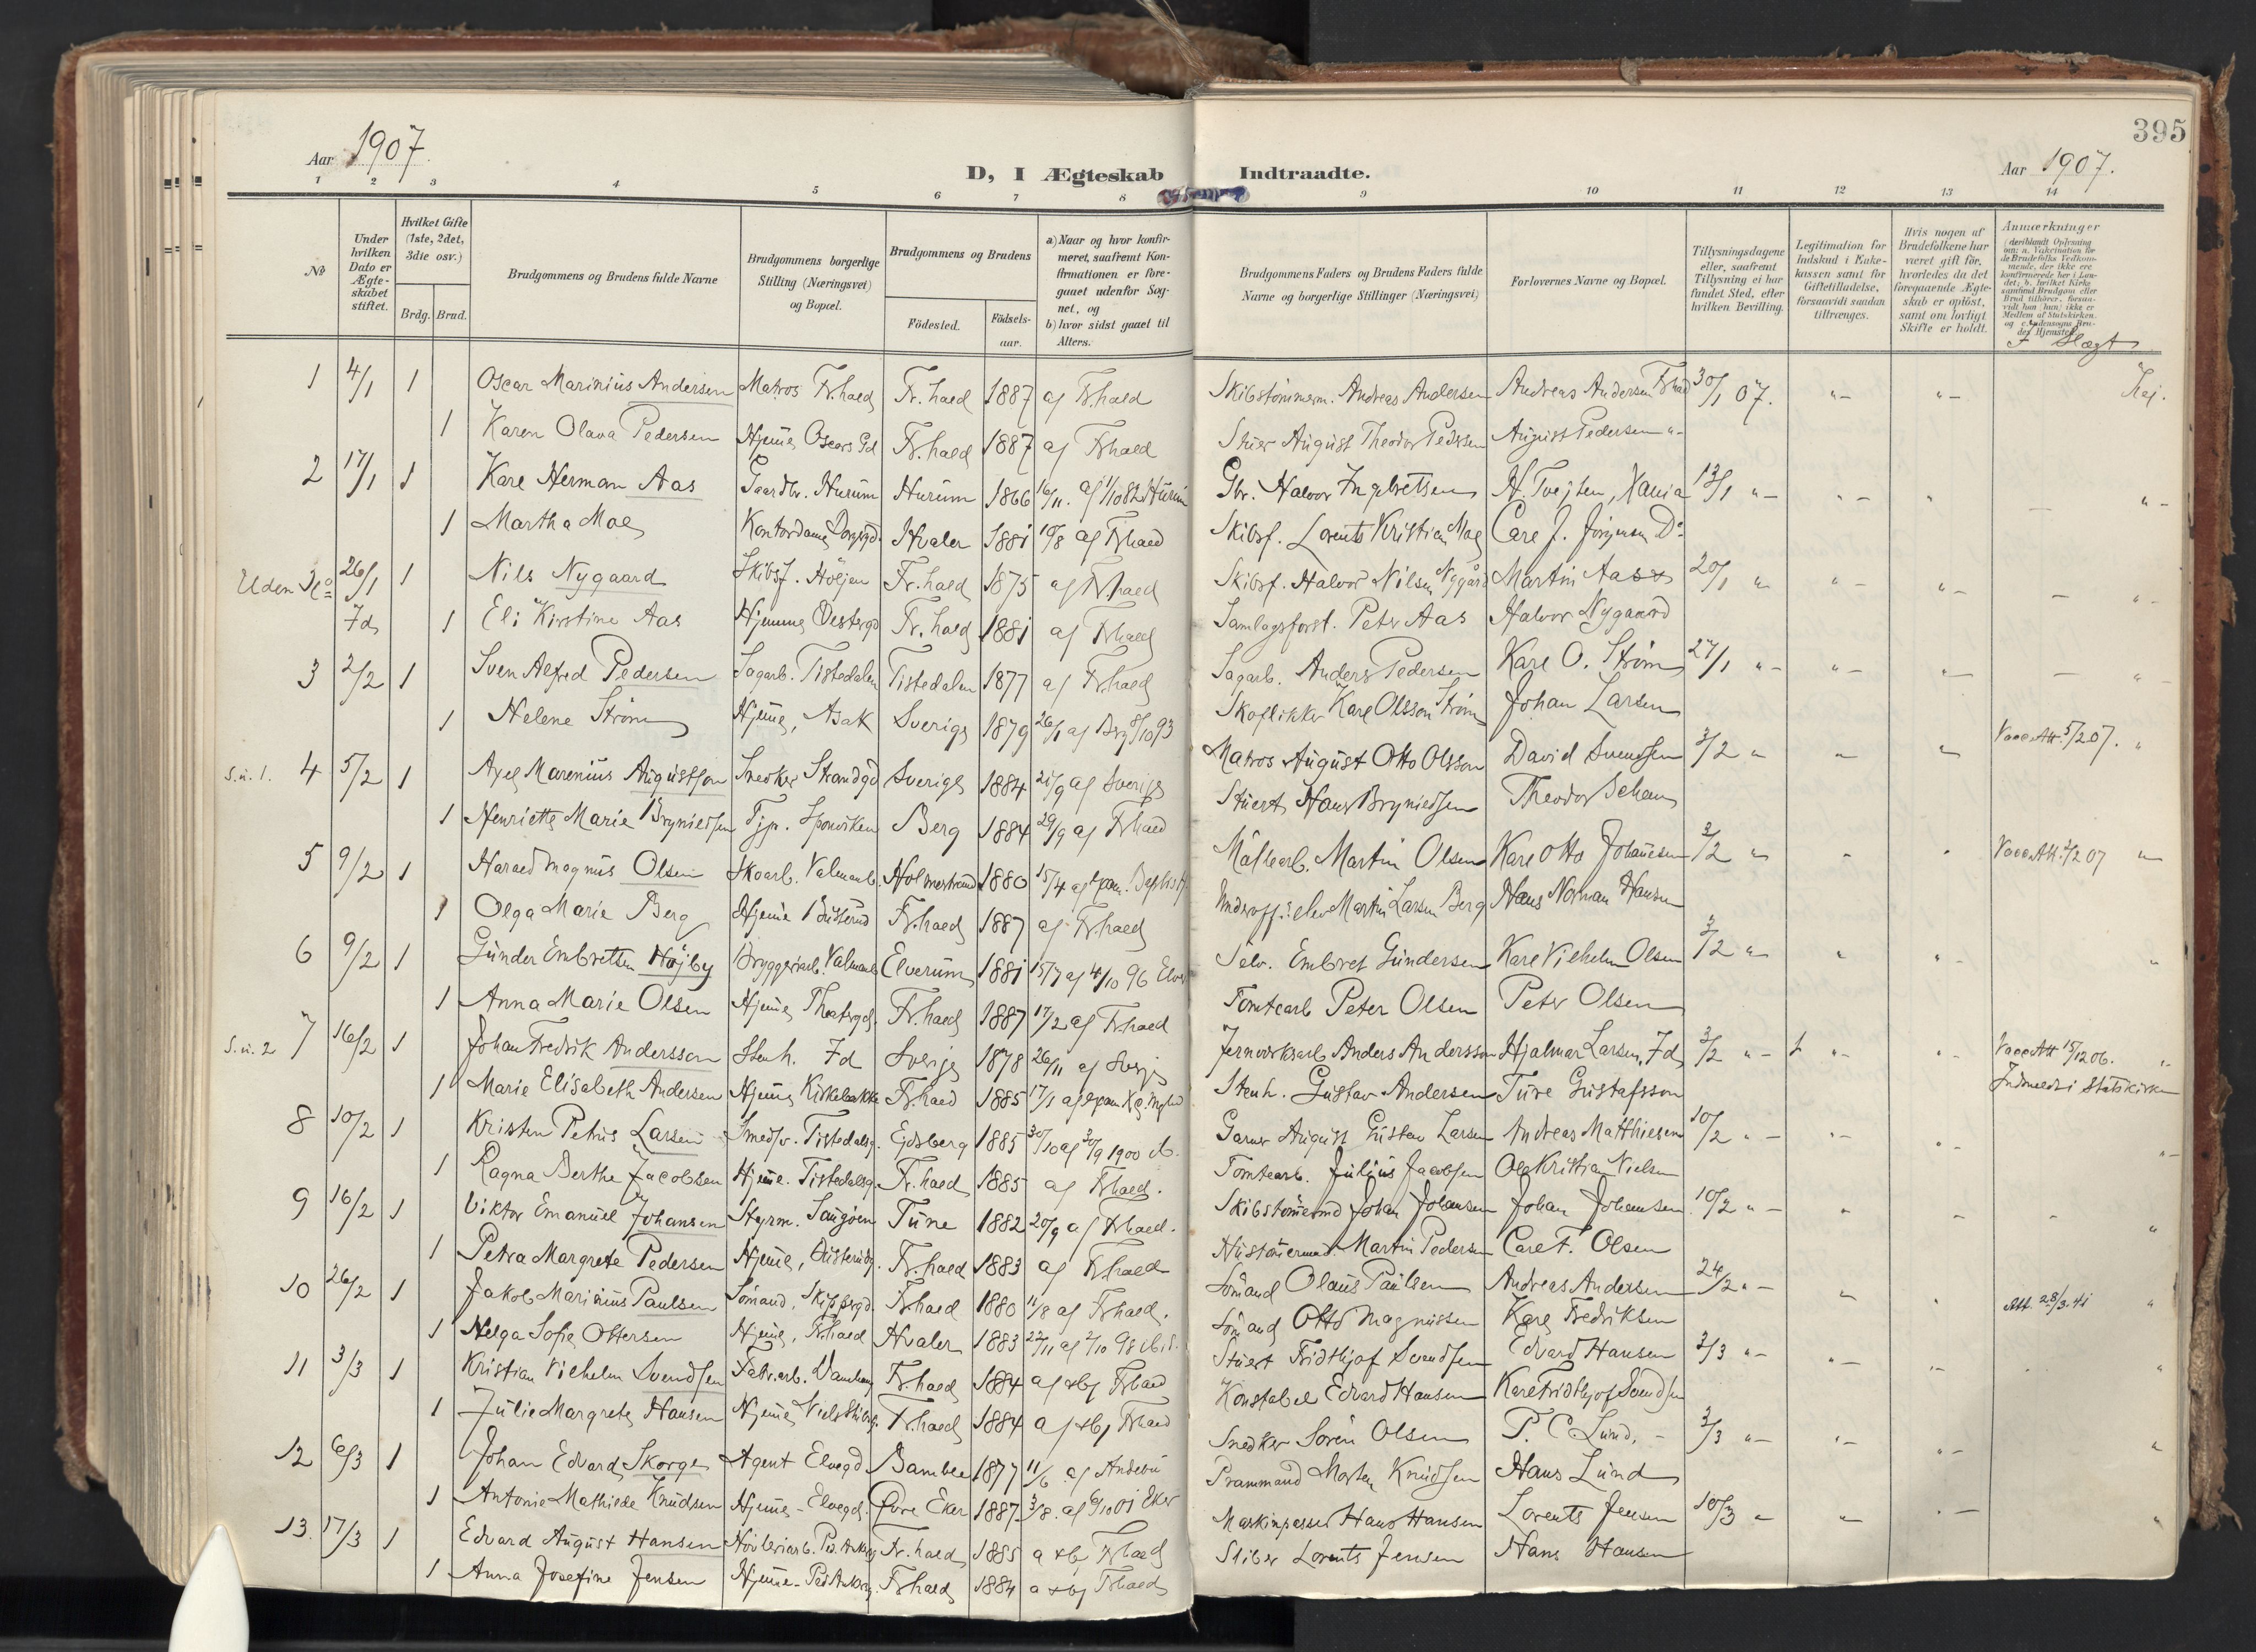 395
Aar 1907.
D, I Ægteskab Indtraadte.
Aar 1907.
1 2 3 4 5 6 7 8 9 10 11 12 13 14
No
Under hvilken Dato er Ægte-skabet stiftet.
Hvilket Gifte (1ste, 2det, 3die osv.)
Brdg. Brud.
Brudgommens og Brudens fulde Navne
Brudgommens borgerlige Stilling (Næringsvei) og Bopæl.
Brudgommens og Brudens
Födested.
Födsels-aar.
a) Naar og hvor konfir-meret, saafremt Kon-firmationen er fore-gaaet udenfor Sog-net, og
b) hvor sidst gaaet til Alters.
Brudgommens Faders og Brudens Faders fulde Navne og borgerlige Stillinger (Næringsvei)
Forlovernes Navne og Bopæl.
Tillysningsdagene eller, saafremt Tillysning ei har fundet Sted, efter hvilken Bevilling.
Legitimation for Indskud i Enke-kassen samt for Giftetilladelse, forsaavidt saadan tiltrænges.
Hvis nogen af Brudefolkene har været gift för, hvorledes da det foregaaende Ægte-skab er oplöst, samt om lovligt Skifte er holdt.
Anmærkninger
Slægt
1 4/1 1 Oscar Marinius Andersen Matros Fr.hald Fr.hald 1887 af Fr.hald Skibstömmerm. Andreas Andersen Andreas Andersen Fr.hald 30/1 07. "- "- Nej.
1 Karen Olava Pedersen Hjeme, Oscars Gd Fr.hald 1887 af Fr.hald August Theodor Pedersen August Pedersen "-
2 17/1 1 Karl Herman Aas Gaardbr. Hurum Hurum 1866 16/11. af 1/10 82 Hurum Gbr. Halvor Ingebretsen H. Tvejten, Xania 13/1 "- "- "
1 Martha Moe Kontordame, Hvaler 1881 10/8 af Fr.hald Skibsf. Lorents Kristian Moe Carl J. Jörgensen Do
Uden No 26/1 1 Nils Nygaard Skibsf. Höljen Fr.hald 1875 af Fr.hald Skibsf. Halvor Nilsen Nygård Martin Aas 20/1 " "- "-
Id 1 Eli Kirstine Aas Hjemme, Vestergd Fr.hald 1881 af Fr.hald Samlagsforst. Peter Aas Halvor Nygaard
3 2/2 1 Sven Alfred Pedersen Sagarb. Tistedalen Tistedalen 1877 af Fr.hald Sagarb. Anders Pedersen Karl O. Ström 27/1 "- "-
1 Helene Ström Hjeme, Asak Sverige 1879 26/1 af Berg 8/10 93 Skoflikker Karl Olsson Ström Johan Larsen
s.u.1. 4 5/2 1 Axel Marenius Augustson Snedker Strandgd Sverige 1884 21/9 af Sverige Matros August Otto Olsson David Svendsen 3/2 " Vacc.Att. 5/2 07.
1 Henriette Marie Brynildsen Tjp. Sponviken Berg 1884 29/9 af Fr.hald Stuert Hans Brynildsen Theodor Schau
5 9/2 1 Harald Magnus Olsen Skoarb. Holmestrand 1880 15/4 Martin Olsen Karl Otto Johansen 3/2 " Vacc.Att. 2/2 07
1 Olga Marie Berg Hjeme Fr.hald 1887 af Fr.hald Underoff. Martin Larsen Berg Hans Norman Hansen
6 9/2 1 Gunder Embretsen Højby Bryggeriarb. Elverum 1881 15/7 af 4/10 96 Elver Selv. Embret Gundersen Karl Vilhelm Olsen 3/2 "
1 Anna Marie Olsen Hjeme, Theatergd. Fr.hald 1887 17/2 af Fr.hald Tomtearb Peter Olsen Peter Olsen
s.u.2 7 16/2 1 Johan Fredrik Andersson Stenh. Id Sverige 1878 26/11 af Sverige Jernverksarb. Anders Andersson Hjalmar Larsen, Id 3/2 "- "- Vacc.Att 15/12 06.
1 Marie Elisabeth Andersen Hjeme, Kirkebakke Fr.hald 1885 17/1 Stenh. Gustav Andersen Ture Gustafsson Indmeldt i Statskirken
8 10/2 1 Kristen Petrus Larsen Smedsv. Tistedalsg. Eidsberg 1885 30/10 af 30/9 1900 Garver August Gustav Larsen Andreas Matthiesen 10/2 "-
1 Ragna Berthe Jacobsen Hjeme. Tistedalsg. Fr.hald 1885 af Fr.hald. Tomtearb. Julius Jacobsen Ole Kristian Nielsen
9 16/2 1 Viktor Emanuel Johansen Styrm. Saugöen Tune 1882 20/9 af Fr.hald. Skibstömermd Johan Johansen Johan Johansen 10/2 "-
1 Petra Margrete Pedersen Hjeme, Fr.hald 1883 af Fr.hald Hustömermd. Martin Pedersen Carl F. Olsen
10 26/2 1 Jakob Marinius Paulsen Sömand, Skippergd. Fr.hald 1880 11/8 af Fr.hald. Sömand Olaus Paulsen Andreas Andersen 24/2 "- Att. 28/3.41
1 Helga Sofie Ottersen Hjeme, Fr.hald Hvaler 1883 27/11 af 2/10 98 Sömand Otto Magnussen Karl Fredriksen
11 3/3 1 Kristian Vilhelm Svendsen Fabr.arb. Fr.hald 1884 a og b Fr.hald Stuert Fridthjof Svendsen Edvard Hansen 3/3 "-
1 Julie Margrete Hansen Hjeme, Fr.hald 1884 a og b Fr.hald Konstabel Edvard Hansen Karl Fridthjof Svendsen
12 6/3 1 Johan Edvard Skorge Agent Elvegd Bamble 1877 11/6 af Andebu Snedker Sören Olsen P. C. Lund. 3/3 "-
1 Antonie Mathilde Knudsen Hjeme - Elvegd. Øvre Eker 1887. 3/8. af 6/10 01 Eker Prammand Morten Knudsen Hans Lund
13. 17/3 1 Edvard August Hansen Hövleriarb. Ped. Ankerg. Fr.hald 1885 a og b Fr.hald Maskinpasser Hans Hansen Lorents Jensen 10/3 "
1 Anna Josefine Jensen Hjeme - Ped Ankerg. Fr.hald 1884 a og b Fr.hald Sliber Lorents Jensen Hans Hansen